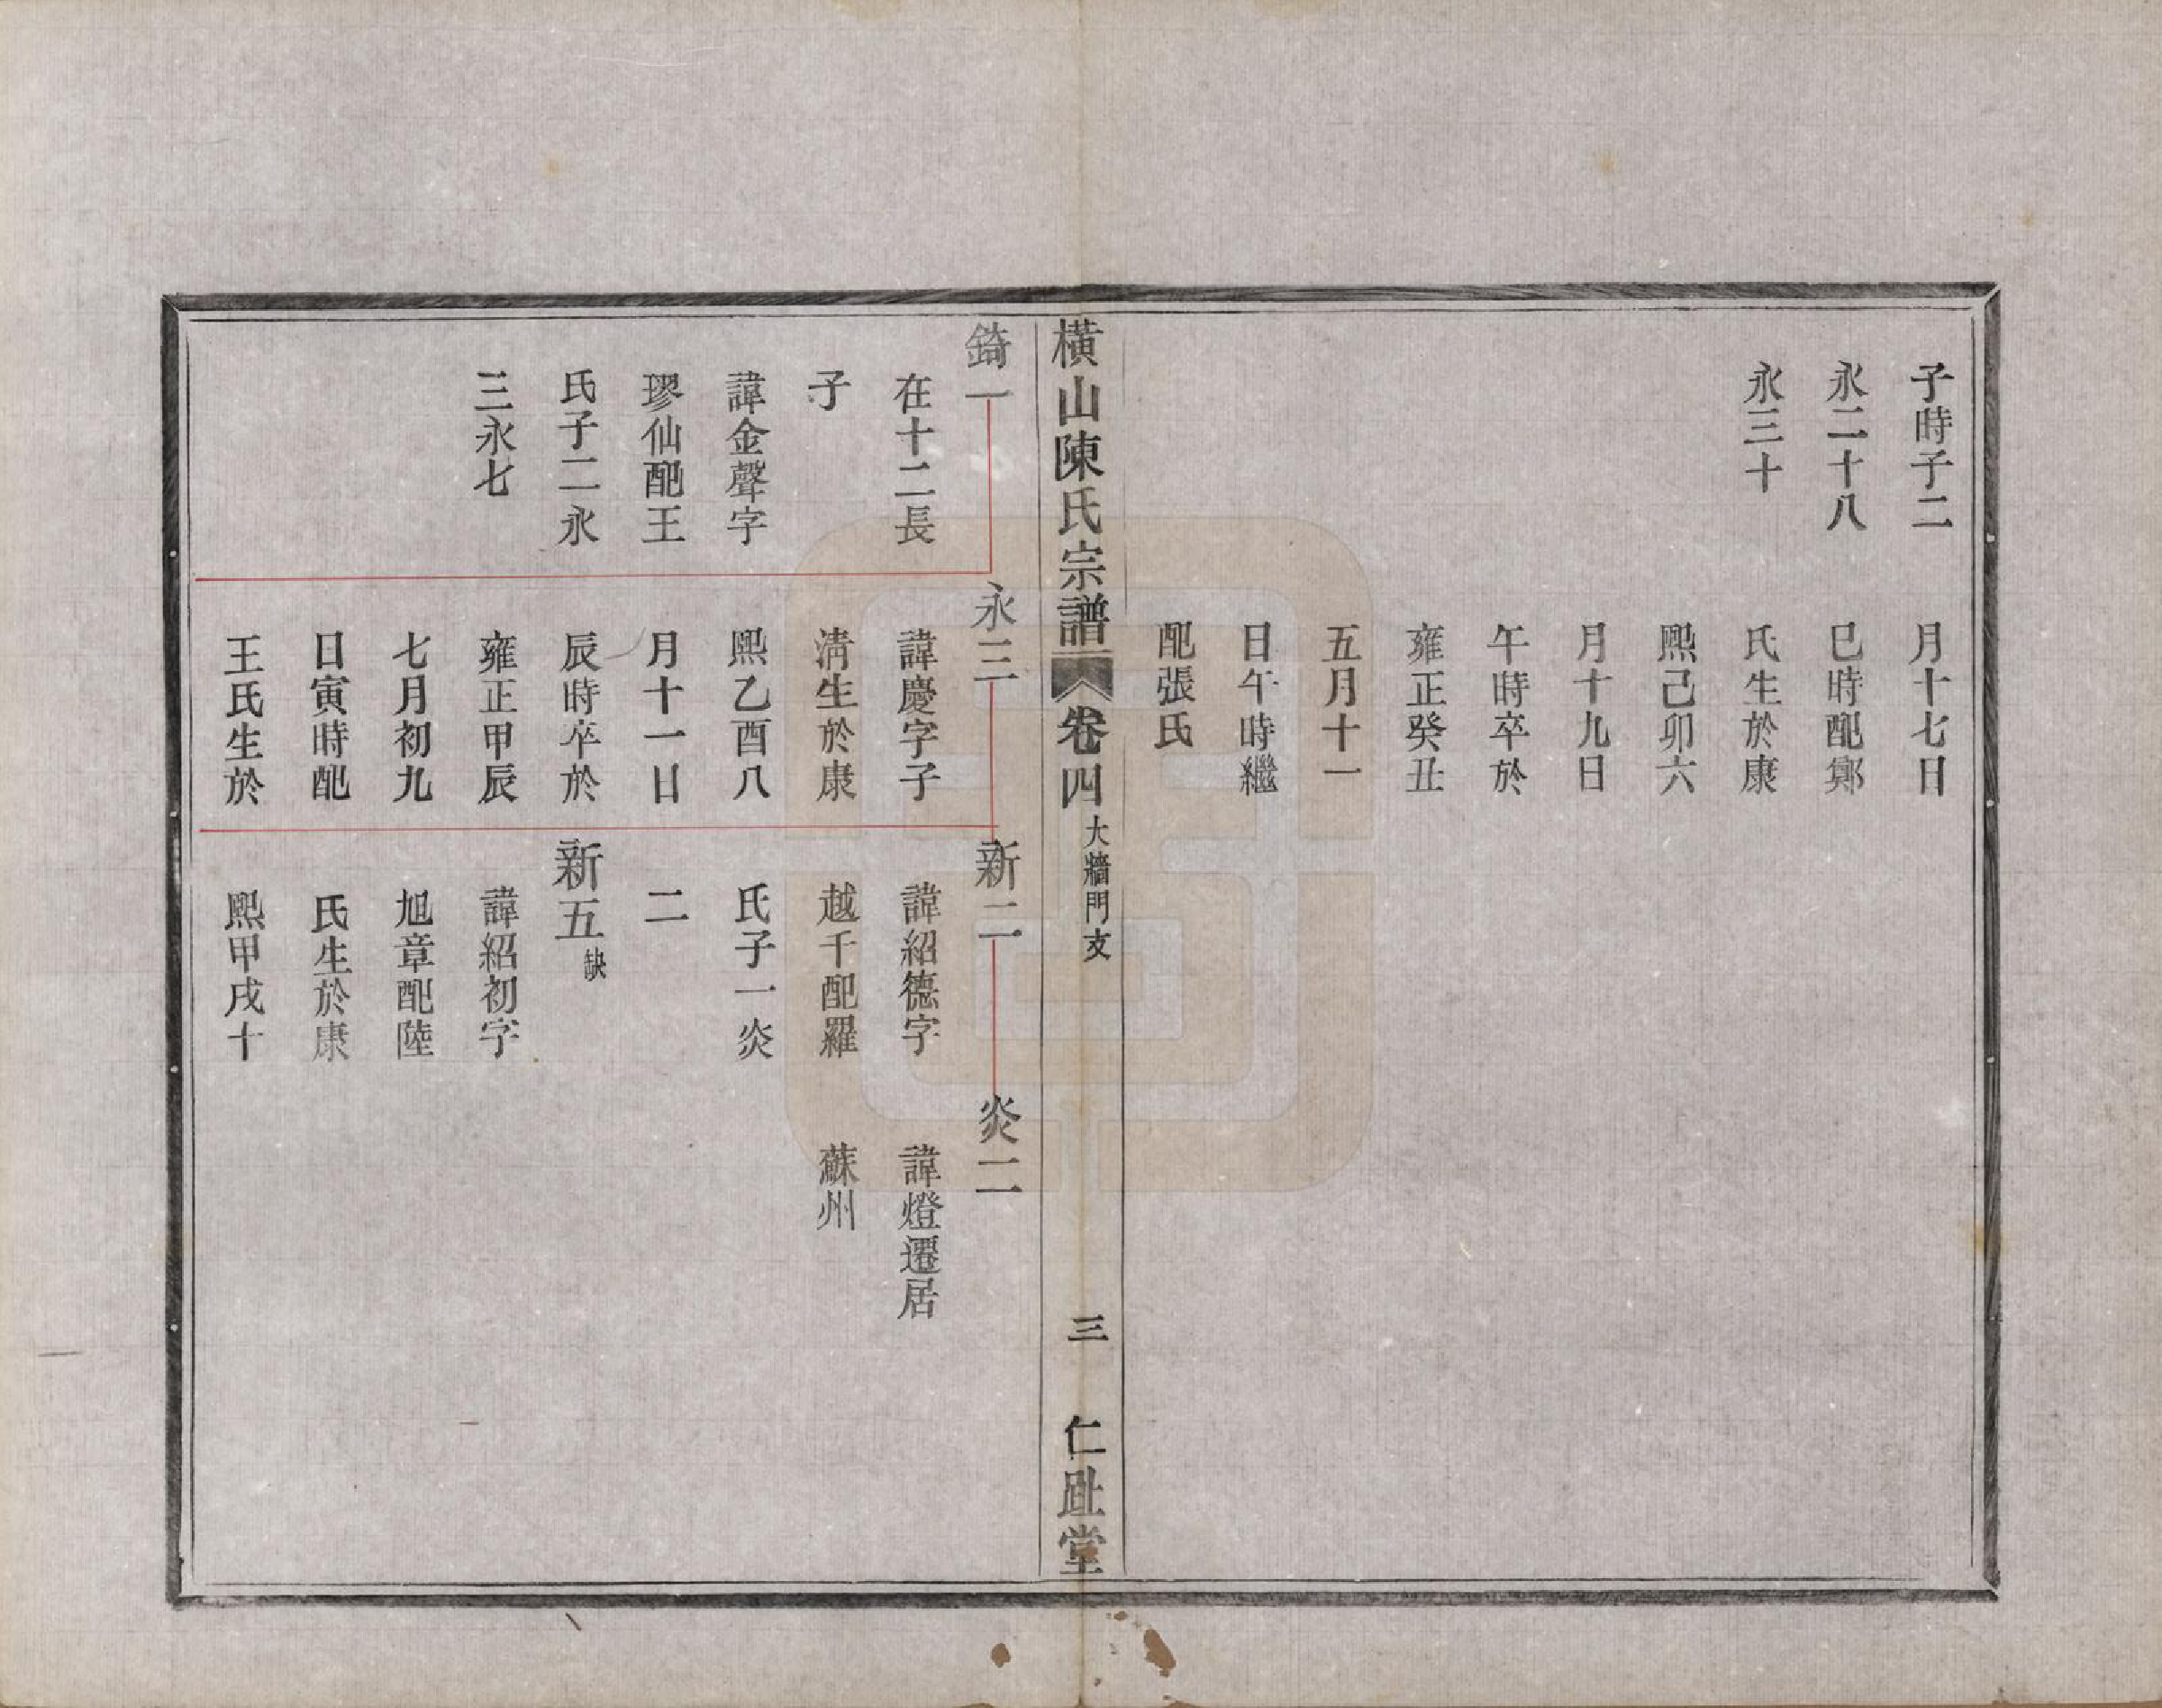 子時子二
永二十八
永三十
月十七日
巳時配鄭
氏生於康
熙己卯六
月十九日
午時卒於
雍正癸丑
五月十一
日午時繼
配張氏
橫山陳氏宗譜
卷四
大牆門支
三
仁趾堂
錡一
在十二長
子
諱金聲字
璆仙配王
氏子二永
三永七
永三
諱慶字子
清生於康
熙乙酉八
月十一日
辰時卒於
雍正甲辰
七月初九
日寅時配
王氏生於
新二
諱紹德字
越千配羅
氏子一炎
二
新五缺
諱紹初字
旭章配陸
氏生於康
熙甲戌十
炎二
諱燈遷居
蘇州